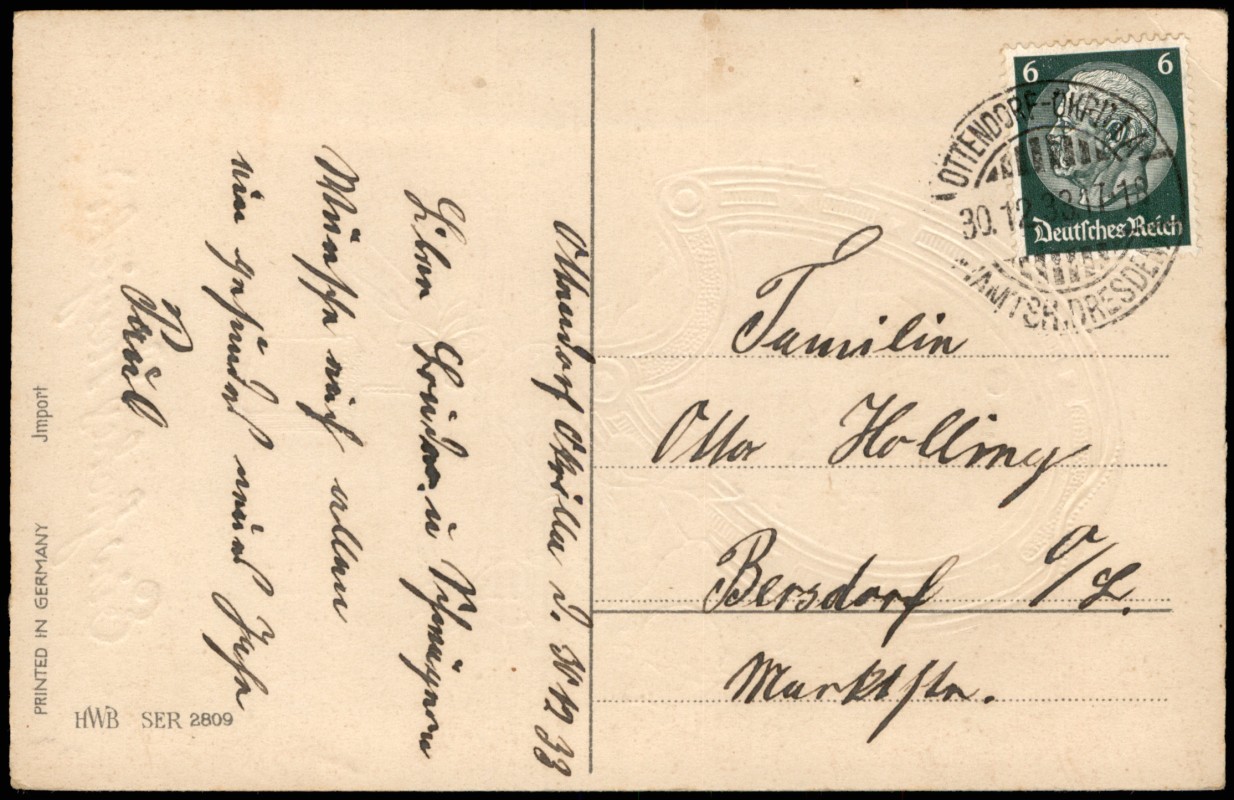 Ottendorf Okrilla d. 30 12 33
Liber Bruder u Schwägerin
Wünsche euch allen
ein gesundes neues Jahr
Paul
PRINTED IN GERMANY Jmport
HWB SER 2809
6 6
Deutsches Reich
OTTENDORF-OKRILLA
30.12.33.17-18
AMTSH.DRESDEN
Familie
Otto
Bersdorf O/L.
Marktstr.